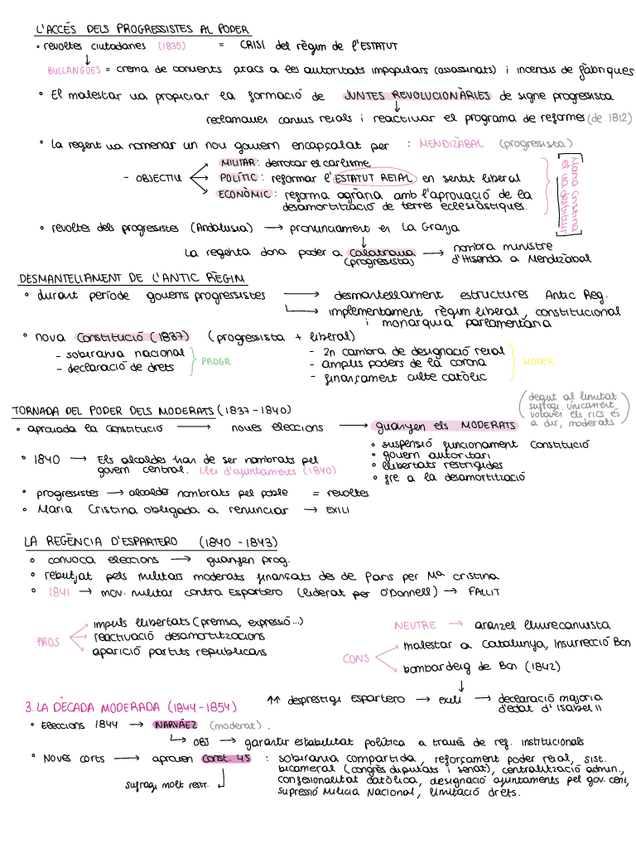 L'ACCÉS DELS PROGRESSISTES AL PODER
• revoltes ciutadanes (1835) = CRISI del règim de l'ESTATUT
BULLANGUES = crema de convents, atacs a les autoritats impopulars (assassinats) i incendis de fàbriques
• El malestar va propiciar la formació de JUNTES REVOLUCIONÀRIES de signe progressista
reclamaven canvis reials i reactivar el programa de reformes (de 1812)
• La regent va nomenar un nou govern encapçalat per : MENDIZÁBAL (progressista)
- OBJECTIU
MILITAR: derrotar el carlisme
POLÍTIC: reformar l'ESTATUT REIAL en sentit liberal
ECONÒMIC: reforma agrària amb l'aprovació de la
desamortització de terres eclesiàstiques.
Maria Cristina
el va destituir
• revoltes dels progressistes (Andalusia) → pronunciament en La Granja
La regenta dona poder a Calatrava → nombra ministre
(progressista) d'Hisenda a Mendizábal
DESMANTELLAMENT DE L'ANTIC RÈGIM
• durant període governs progressistes → desmantellament estructures Antic Reg.
→ implementament règim liberal, constitucional
i monarquia parlamentària
• nova Constitució (1837) (progressista + liberal)
- sobirania nacional
- declaració de drets
PROGR.
- 2n cambra de designació reial
- amplis poders de la corona
- finançament culte catòlic
MODER.
TORNADA DEL PODER DELS MODERATS (1837-1840)
(degut al limitat
sufragi. Únicament
votaven els rics és
a dir, moderats)
• aprovada la constitució → noves eleccions → guanyen els MODERATS
• suspensió funcionament Constitució
• govern autoritari
• llibertats restrigides
• fre a la desamortització
• 1840 → Els alcaldes han de ser nombrats pel
govern central. Llei d'ajuntaments (1840)
• progressistes → alcaldes nombrats pel poble = revoltes
• Maria Cristina obligada a renunciar → EXILI
LA REGÈNCIA D'ESPARTERO (1840-1843)
• convoca eleccions → guanyen prog.
• rebutjat pels militars moderats finançats des de París per Mª Cristina
• 1841 → mov. militar contra Espartero (liderat per O'Donnell) → FALLIT
PROS
impuls llibertats (premsa, expressió...)
reactivació desamortitzacions
aparició partits republicans
NEUTRE → aranzel lliurecanvista
CONS
malestar a Catalunya, Insurrecció Bcn
bombardeig de Bcn (1842)
↑↑ desprestigi Espartero → exili → declaració majoria
d'edat d'Isabel II
3. LA DÈCADA MODERADA (1844-1854)
• Eleccions 1844 → NARVÁEZ (moderat).
→ OBJ → garantir estabilitat política a través de ref. institucionals
• Noves corts → aproven Const. 45 : sobirania compartida, reforçament poder reial, sist.
bicameral (congrés diputats i senat), centralització admin.,
confesionalitat catòlica, designació ajuntaments pel gov. cent,
supressió Milícia Nacional, limitació drets.
sufragi molt restr.